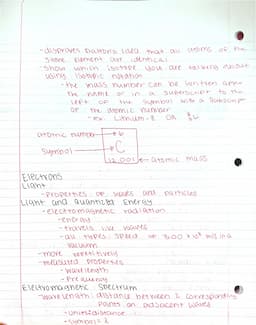 -disproves Daltons idea that all atoms of the
same element are identical
-show which isotope you are talking about
using isotopic notation
-the mass number can be written after
the name or in a superscript to the
left of the symbol with a subscript
of the atomic number
-ex. Lithium-8 OR
atomic number → 6
symbol → C
12.001 ← atomic mass
Electrons
Light
-properties of waves and particles
Light and Quantized Energy
-electromagnetic radiation
-energy
-travels like waves
-all types: speed of 3.00 x 10⁸ m/s in a
vacuum
-measured properties
-wavelength
-frequency
Electromagnetic Spectrum
-wavelength: distance between 2 corresponding
points on adjacent waves
-units: distance
-symbol: λ